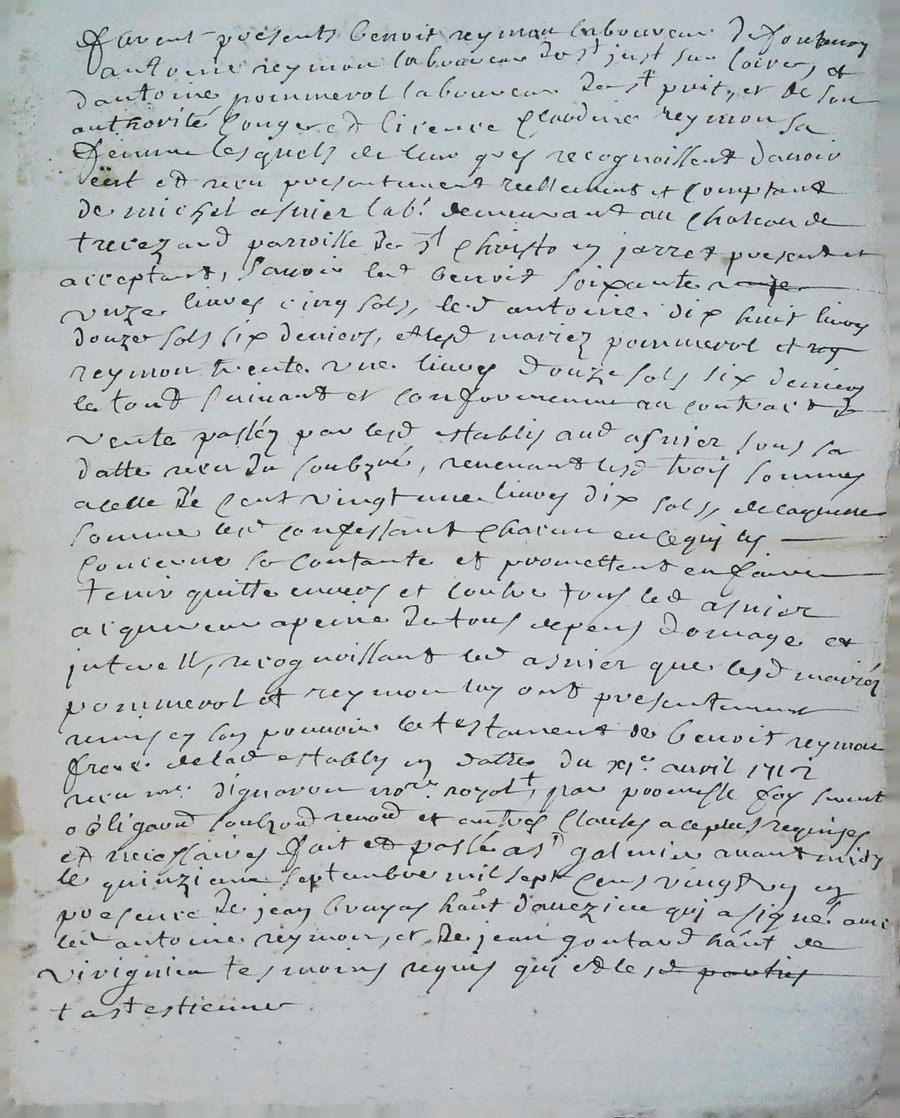 furent presents benoit reymon laboureur de fontanes
antoine reymon laboureur de st just sur loire, et
d'antoine pommerol laboureur de st prit, et de son
authorité conger et licence claudine reymon sa
femme lesquels de leur grez recognoissent d'avoir
eüt et receu presentement reellement et comptant
de michel asnier lab.r demeurant au chateau de
trecezard parroisse de st christo en jarret present et
acceptant, savoir led benoit soixante
unze livres cinq sols, led antoine dix huit livres
douze sols six deniers, et lesd mariez pommerol et
reymon trente une livres douze sols six deniers
le tout suivant et conformement au contract de
vente passéz par lesd establis aud asnier sous sa
datte receu du soubzné, revenant lesd trois sommes
a celle de cent vingt une livres dix sols, de laquelle
somme led confessant chacun en ce qui les
concerne se contante et promettent en faire
tenir quitte envers et contre tous led asnier
acquereur a peine de tous depens domage et
interest, recognoissant led asnier que lesd mariés
pommerol et reymon luy ont presentement
remis en son pouvoir le testament de benoit reymon
frere de lad establis en datte du XIe avril 1712
receu me dignaron no.re royal, par promesse foy serment
obligaon soubzon renon et autres clauses a ce plus requises
et necessaires fait et passé a st galmier avant midy
le quinzieme septembre mil sept cens vingt un en
presence de jean bruyas hânt d'avezieu qui a signé avec
led antoine reymon, et de jean goutard hânt de
virignieu tesmoins requis qui et lesd parties
t a st estienne